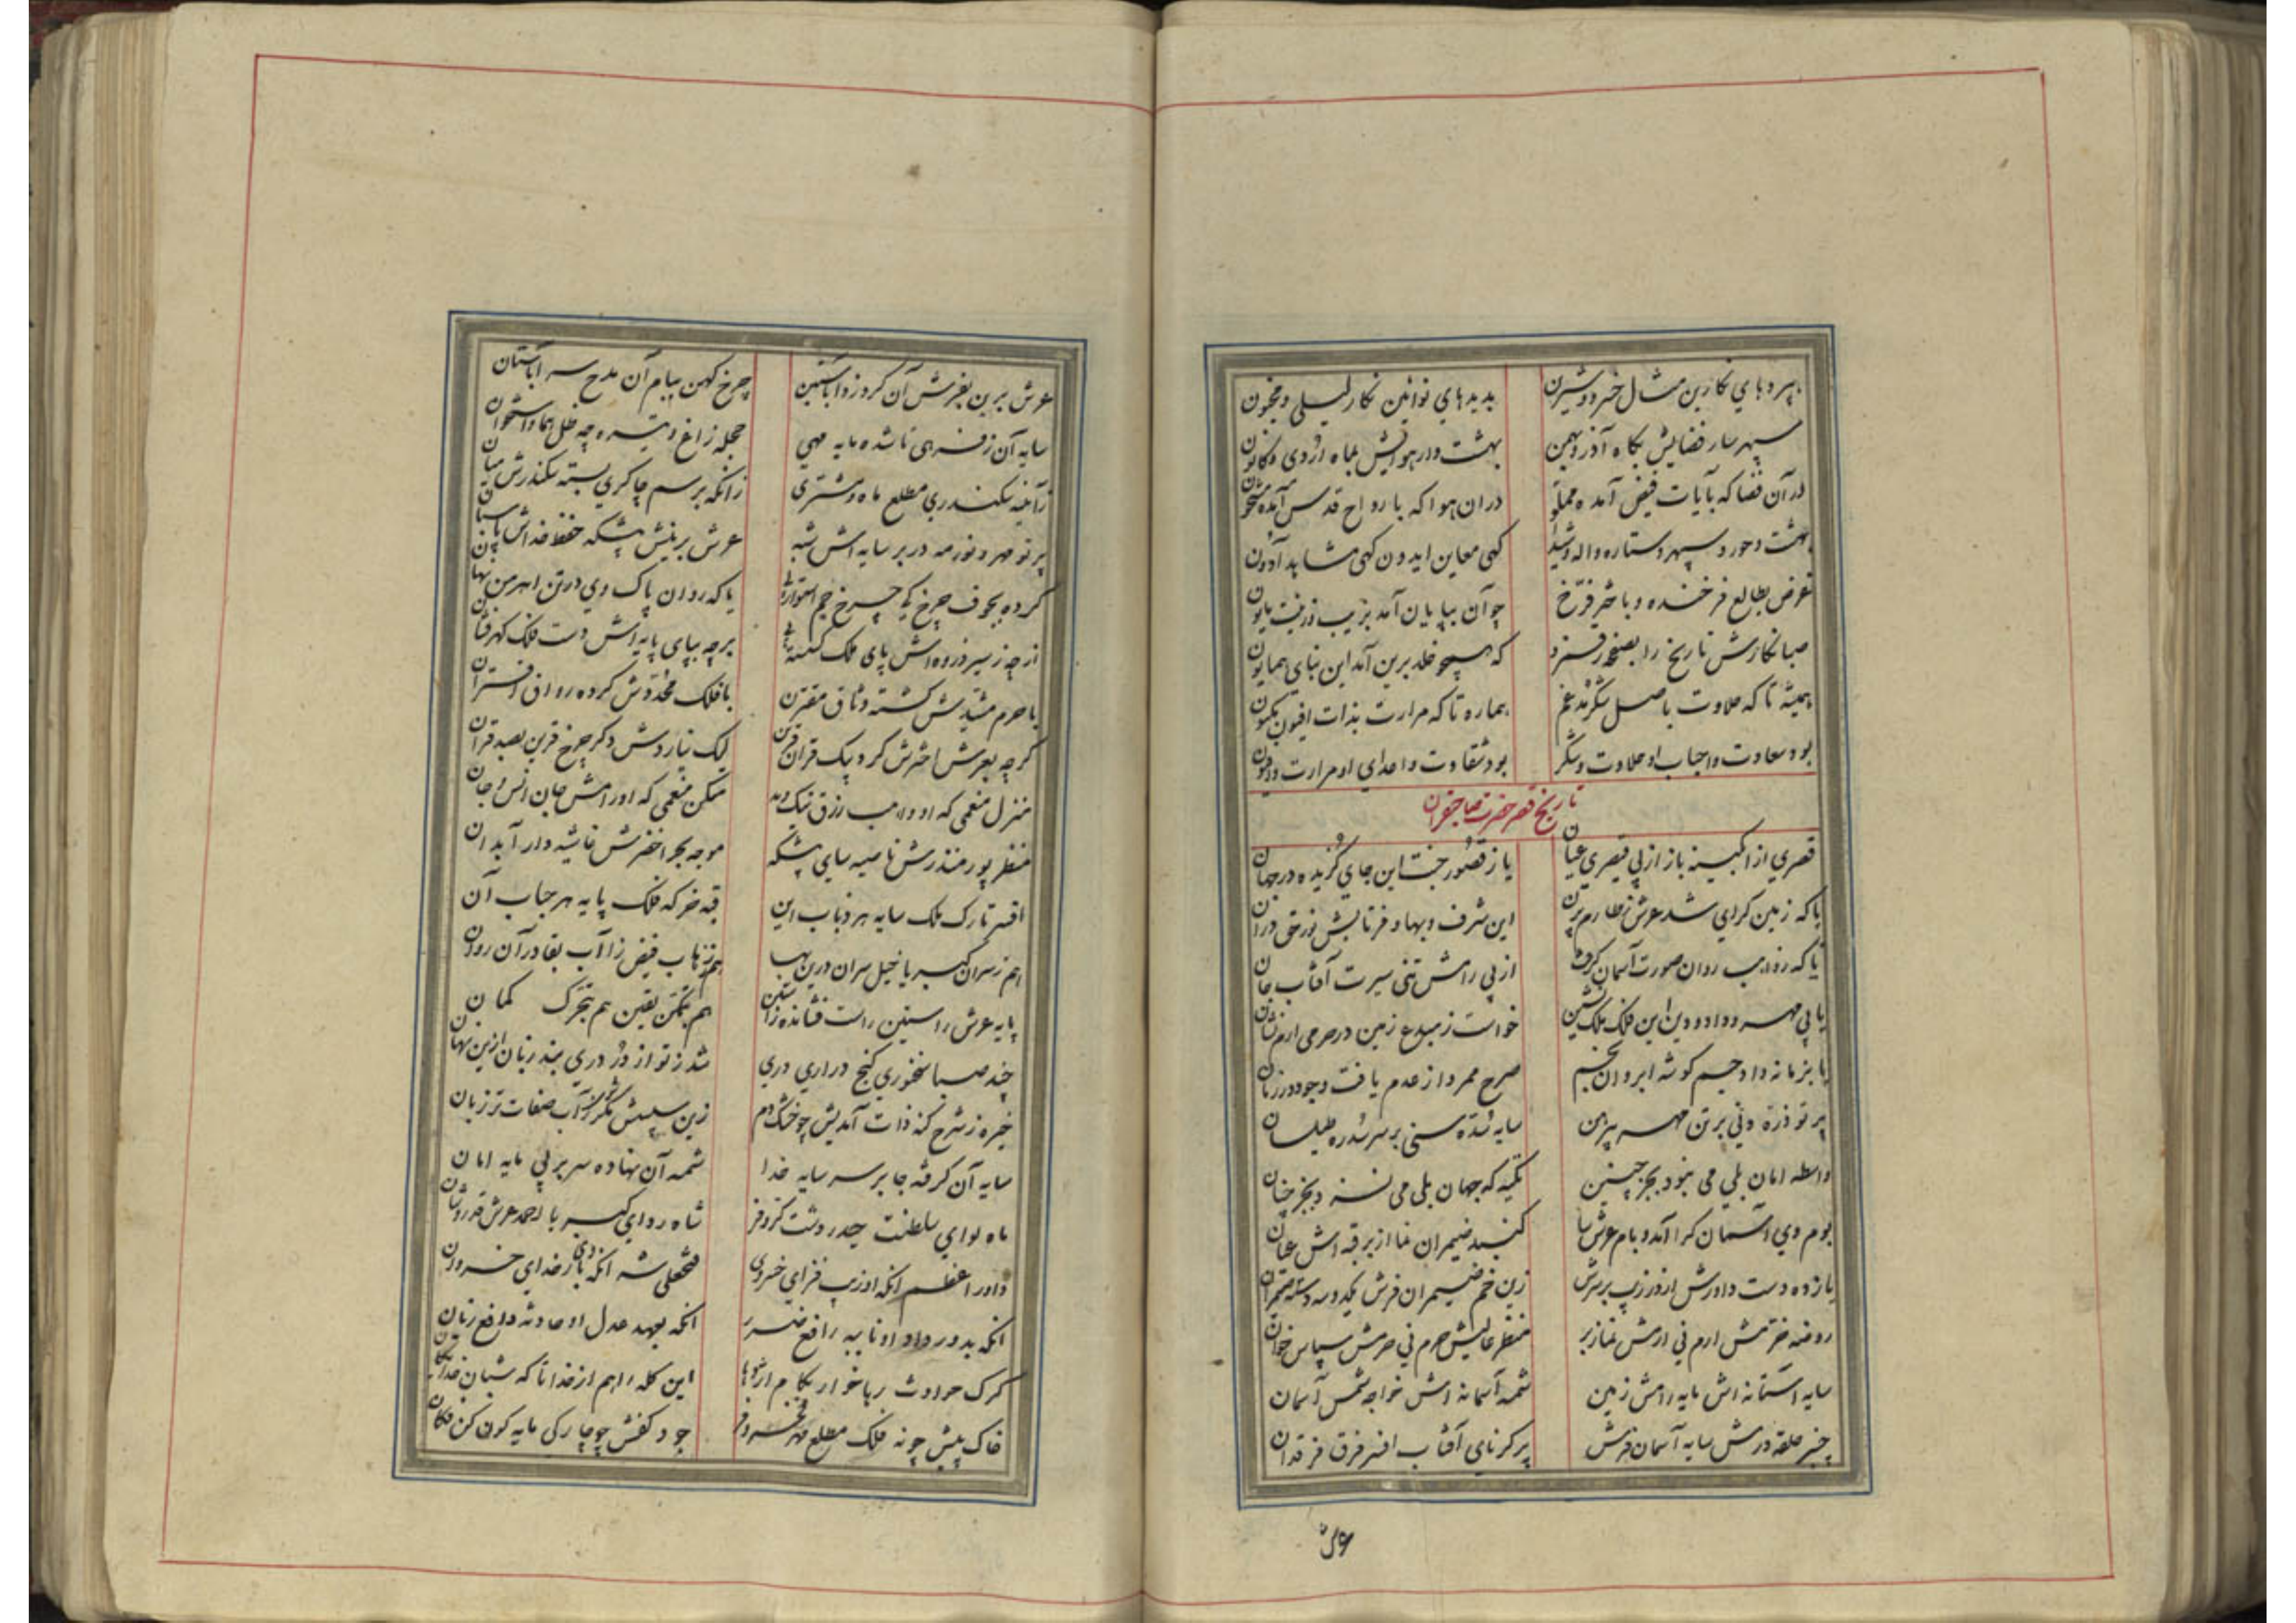 بپرده‌های نکارین مثال خسرو و شیرین بدیدهای نوائین نکار لیلی و مجنون
سپهر سار فضایش بکاه آذر و بهمن بهشت وار هوایش بماه اژدی و کانون
در آن فضا که بآیات فیض آمده مملو دران هوا که بارواح قدس آمده مشحون
بهشت و حور و سپهر و ستاره واله و شیدا کهی معاین ایدون کهی مشاید آدون
غرض بطالع فرخنده و باختر فرّخ چو آن بپایان آمد بزیب و زینت
صبا نکارش تاریخ را بصفحه رقم زد که همچو خلد برین آمد این بنای همایون
همیشه تا که حلاوت باصل شکر مدغم هماره تا که مرارت بذات افیون
بود سعادت و احباب او حلاوت و شکر بود شقاوت و اعدای او مرارت و افیون
تاریخ قصر حضرت صاحبقران
قصری از ابکینه باز از پی قیصری عیان یا ز قصور جنت این جای کزیده در جهان
یا که زمین کرای شد عرش ز طارم برین این شرف و بها و فر تابش نور حق در آن
یا که روان صورت آسمان از پی رامش تنی سیرت آفتاب جان
یا پی مهر و داد و دین این فلک ملک نشین خواست ز مبدع زمین در حرمی ارم نشان
یا بزمانه داد جم کوشه ابروان بخم صرح ممرد از عدم یافت وجود در زمان
پرتو ذره دنی بر تن مهر پیرهن سایه شده سنی بر سر سدره طیلسان
واسطه امان بلی می نبود بجز چنین تکیه که جهان بلی می نسزد بجز چنان
بوم وی آسمان کرا آمد و بام عرش سا کنبد ضیمران نما از بر قبه اش عیان
یازده دست داورش از در زیب بر سرش زین خم ضیمران فرش یکدو سه دسته ضیمران
روضه خرمش ارم نی ارمش نماز بر منظر عالیش حرم نی حرمش سپاس خوان
سایه آستانه اش مایه رامش زمین شمسه آسمانه اش خواجه شمس آسمان
چنبر حلقه درش سایه آسمان فرش پرکر نای آفتاب افسر فرق فرقدان
عرش
عرش برین بفرش آن کرو زدو استین چرخ کهن ببام آن مدح سر آستان
سایه آن ز فرهی تا شده مایه مهی جمله زاغ و تیره چه ظل هما و استخوان
زآینه سکندری مطلع ماه و مشتری زانکه برسم چاکری بسته سکندرش میان
پرتو مهر و نور مه در بر سایه اش شبه عرش برینش پیشکه حفظ خداش پاسبان
کرده بجوف چرخ کی چرخ جم استوار یا که روان پاک وی در تن اهرمن نهان
از چه ز سیر ذروه اش پای ملک برچه بپای پایه اش دست فلک کهر فشان
با حرم مشیدش کشته وثاق مقترن با فلک مخدوش کرده رواق اقتران
کرچه بعرش اخترش کرد یک قران قرین لیک نیاردش دکر چرخ قرین بصد قران
منزل منعمی که او واهب رزق نیک و بد مسکن منعمی که او رامش جان انس و جان
منظر پور منذرش ناصیه سای پیشکه موجه بحر اخضرش غاشیه دار آبدان
افسر تارک ملک سایه هر ذباب این قبه خرکه فلک پایه هر حباب آن
هم ز سران کبر یا خیل سران درین هم ز ذهاب فیض زا آب بقا در آن روان
پایه عرش راستین راست فشانده ز آستین هم بتمکن یقین هم بتحرک کمان
چند صبا سخنوری کنج دراری دری شد ز تو از در دری بند زبان ازین نهان
خیره ز شرح کنه ذات آمدیش چو خشک دم زین سپس شکر آب صفات تر زبان
سایه آن کرفه جا بر سر سایه خدا شمسه آن نهاده سر بر پی مایه امان
ماه لوای سلطنت حیدر دشت کر و فر شاه ردای کبریا احمد عرش قدر و شان
داور اعظم آنکه او زیب فزای خسروی فتحعلی شه آنکه بازوی خدای خسروان
آنکه بدور داد او نایبه رافع ضرر آنکه بعهد عدل او حادثه دافع زیان
کرک حوادث ربا خوار بکام اژدها این کله را هم از خدا تا که شبان خدایکان
خاک پیش چو نه فلک مطلع مهر جود کفش چو چار رکن مایه کون کن فکان